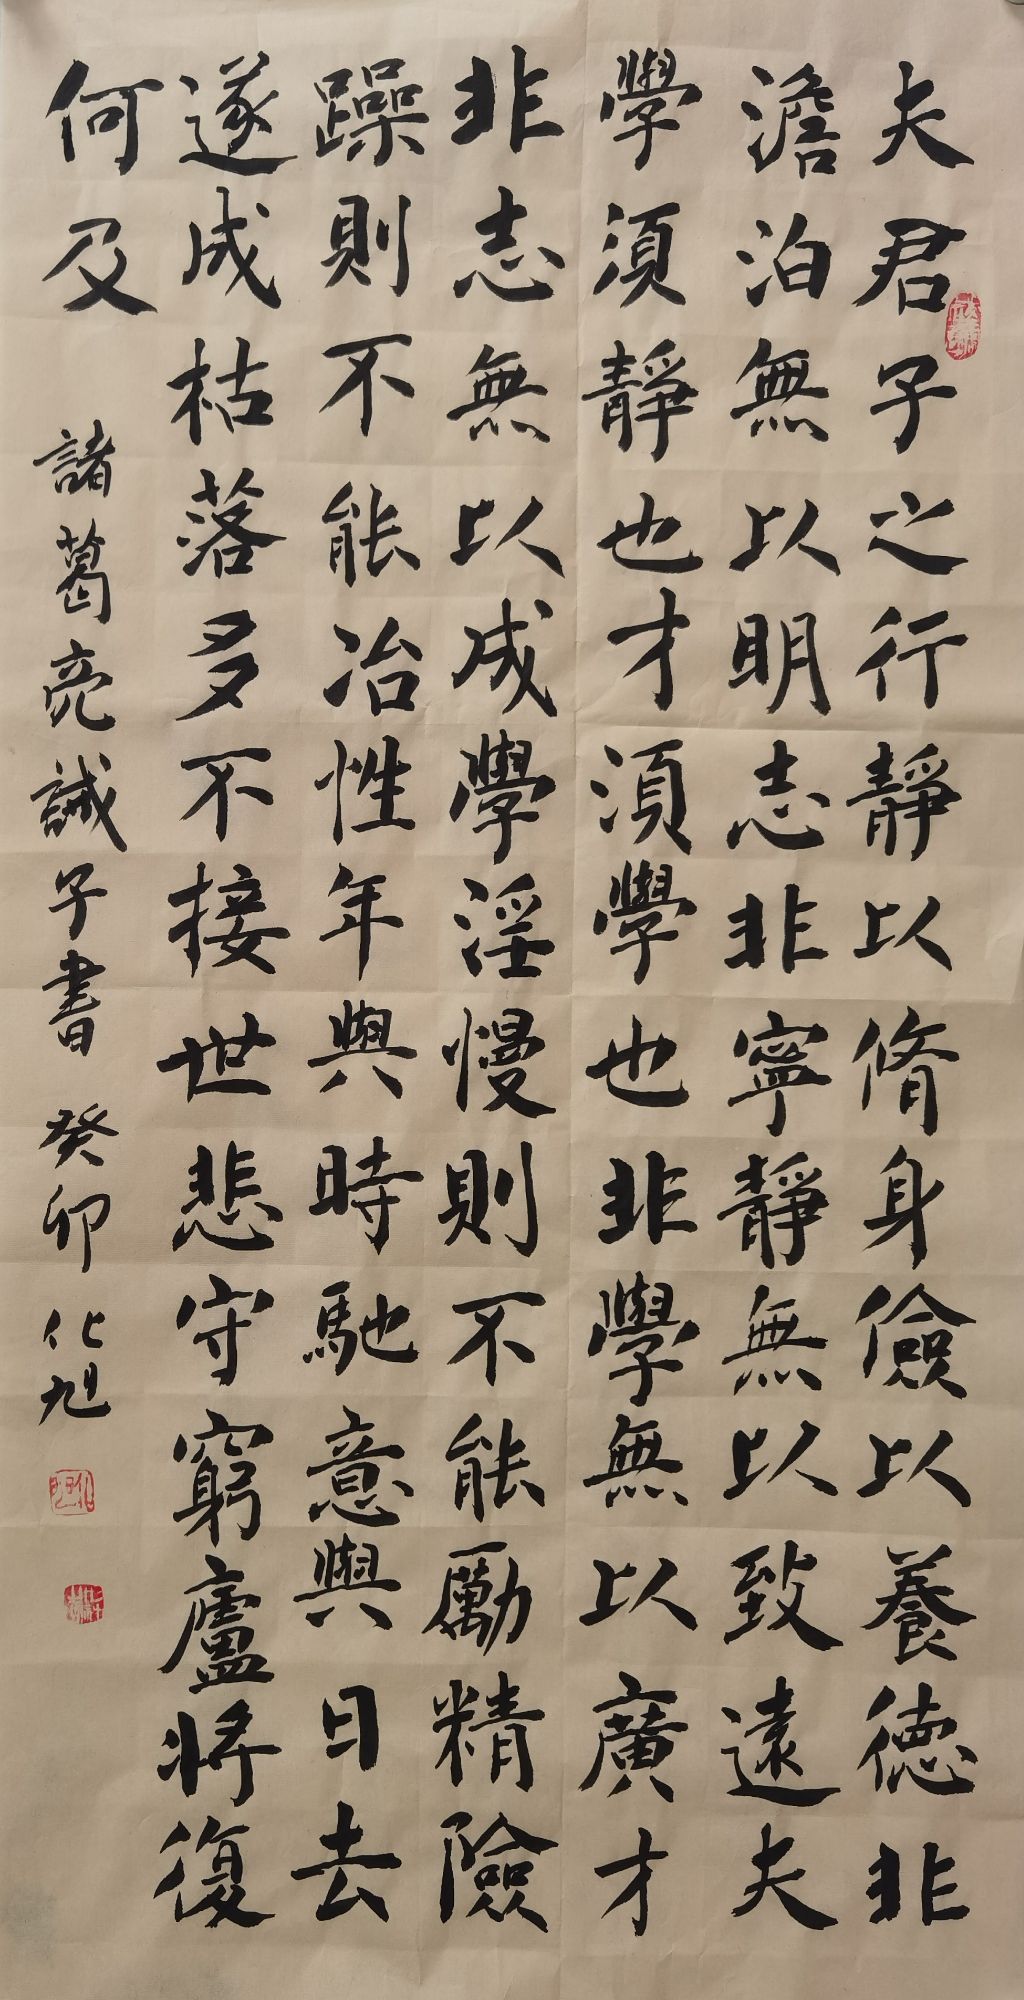 夫君子之行靜以脩身儉以養德非
澹泊無以明志非寧靜無以致遠夫
學須靜也才須學也非學無以廣才
非志無以成學淫慢則不能勵精險
躁則不能冶性年與時馳意與日去
遂成枯落多不接世悲守窮廬將復
何及
諸葛亮誡子書 癸卯 化旭